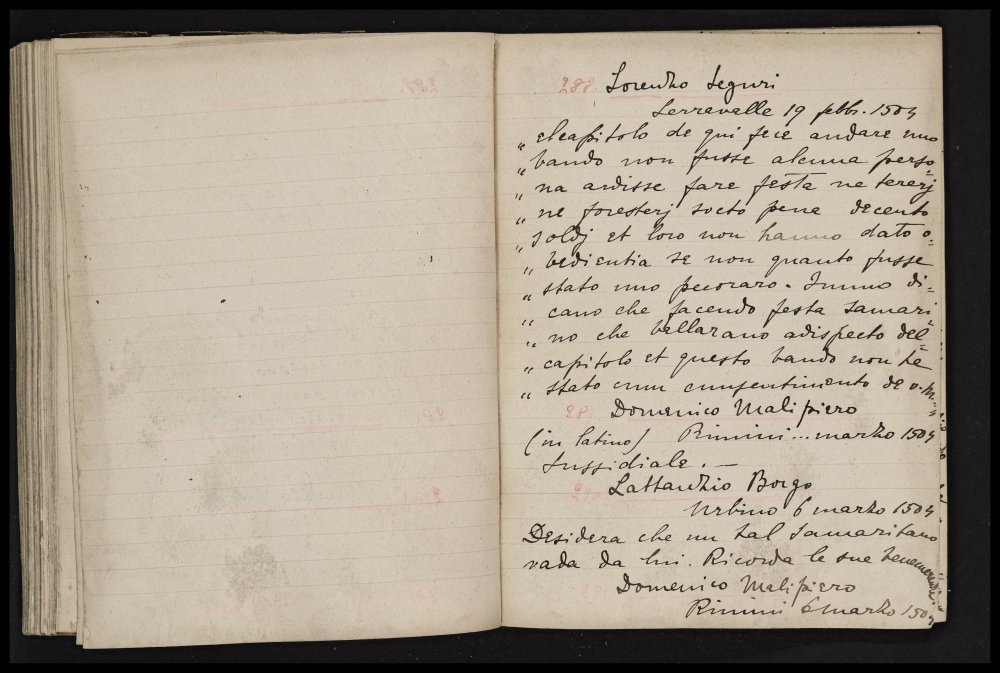 288. Lorenzo Seguri
Serrevalle 19 febbr. 1504
„ elcapitolo de qui fece andare uno
„ bando non fusse alcuna perso=
„ na ardisse fare festa ne tererj
„ ne foresterj socto pena decento
„ soldj et loro non hanno dato o=
„ bedientia se non quanto fusse
„ stato uno pecoraro. Immo di=
„ cano che facendo festa Samari=
„ no che ballarano adispecto del=
„ capitolo et questo bando non fè
„ stato cum cunsentimento de v. m.
Domenico Malipiero
(in latino) Rimini ... marzo 1504
Sussidiale. —
Lattanzio Borgo
Urbino 6 marzo 1504
Desidera che un tal Samaritano
vada da lui. Ricorda le sue benemerenze
Domenico Malipiero
Rimini 6 marzo 1504